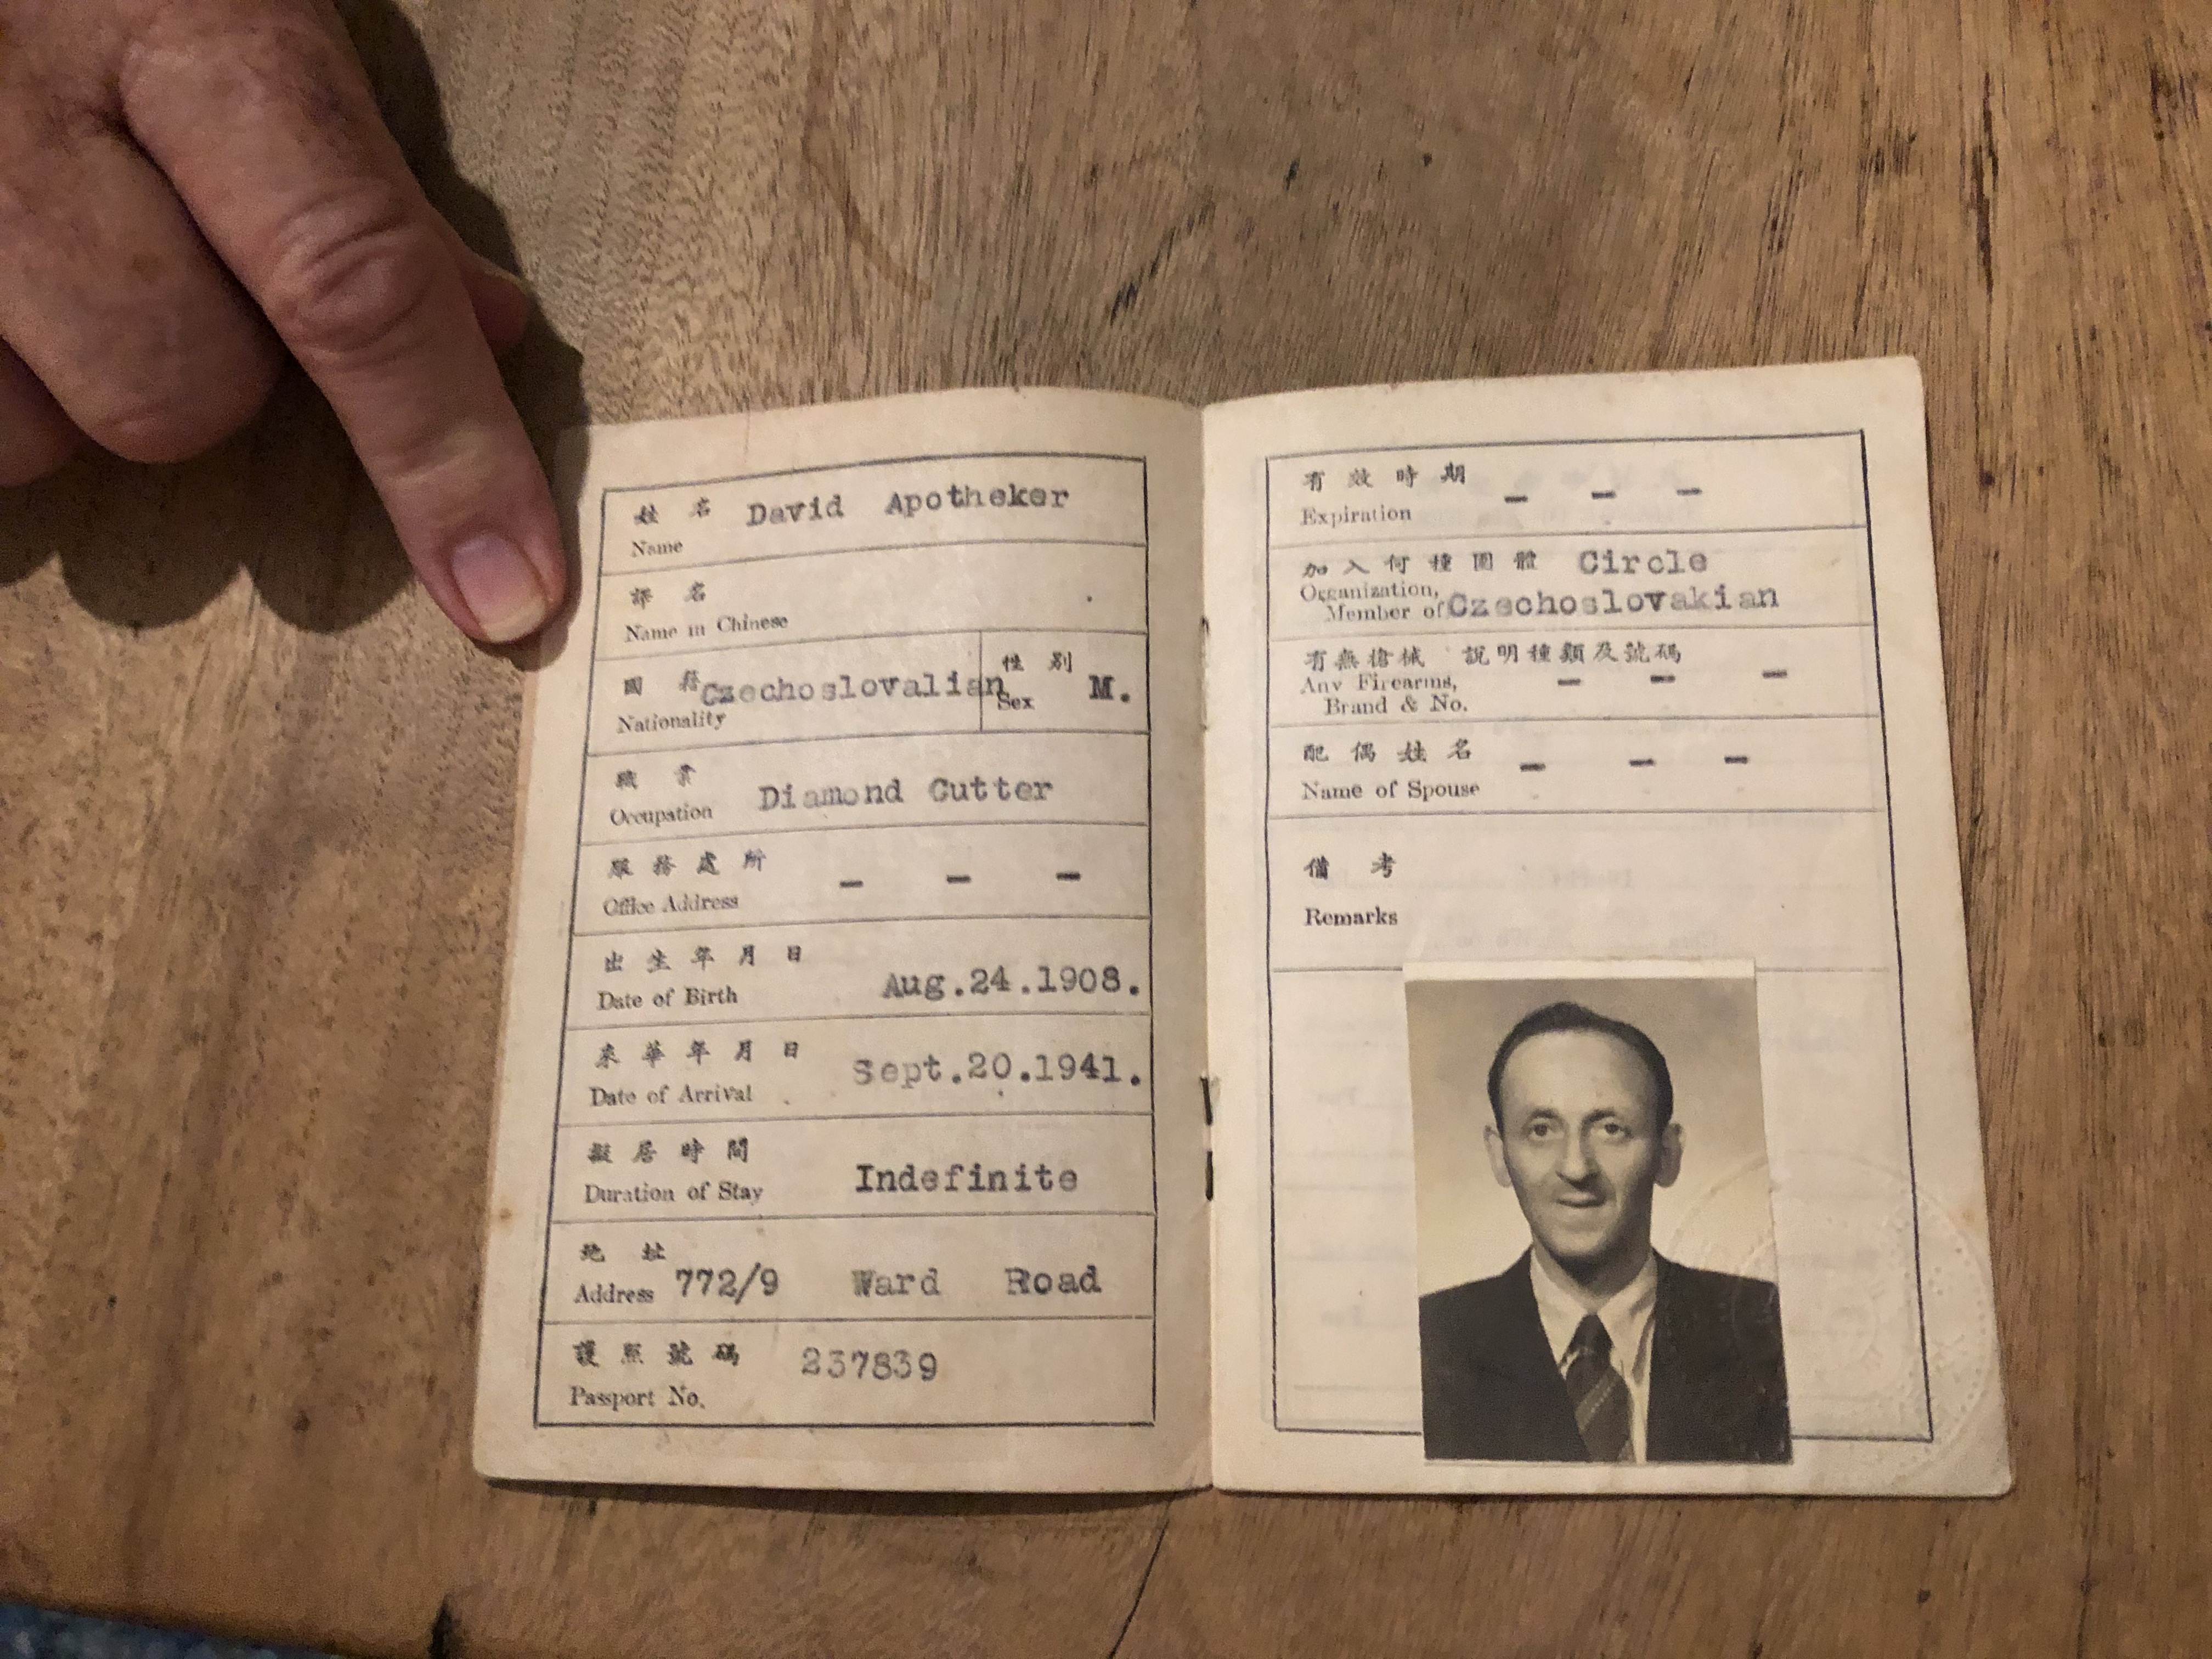 姓名 David Apotheker
Name
譯名
Name in Chinese
國籍 Czechoslovalian 性別 M.
Nationality Sex
職業 Diamond Cutter
Occupation
服務處所 - - -
Office Address
出生年月日 Aug.24.1908.
Date of Birth
來華年月日 Sept.20.1941.
Date of Arrival
擬居時間 Indefinite
Duration of Stay
地址
Address 772/9 Ward Road
護照號碼 237839
Passport No.
有效時期 - - -
Expiration
加入何種團體 Circle
Organization,
Member of Czechoslovakian
有無槍械 說明種類及號碼
Any Firearms, - - -
Brand & No.
配偶姓名 - - -
Name of Spouse
備考
Remarks